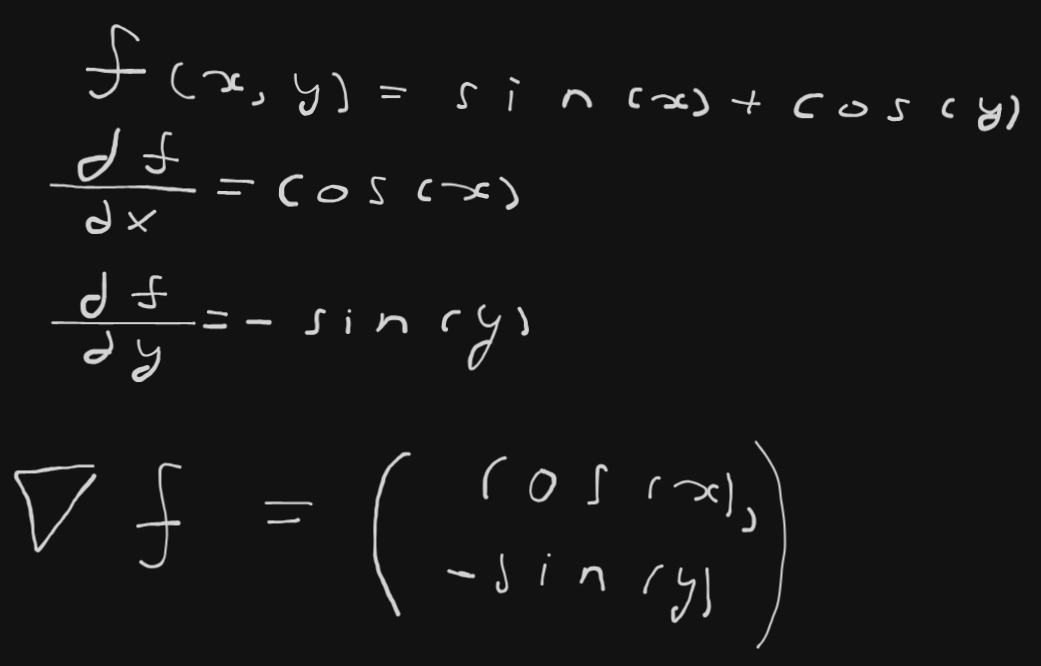 f(x, y) = sin(x) + cos(y)
df/dx = cos(x)
df/dy = - sin(y)
∇f = (cos(x),
-sin(y))